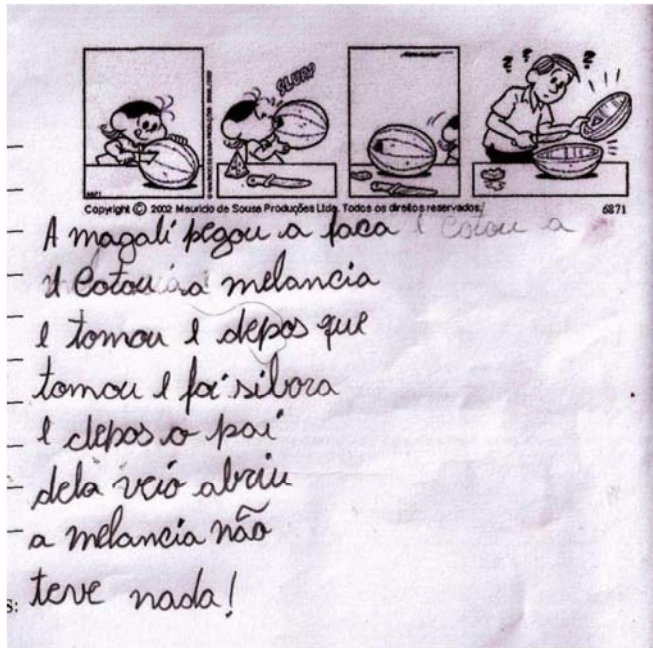 SLURP
Copyright © 2002 Mauricio de Sousa Produções Ltda. Todos os direitos reservados. 6871
A magali pegou a faca e cotou a
e cotou a melancia
e tomou e depos que
tomou e foi sibora
e depos o pai
dela veio abriu
a melancia não
teve nada!
s: